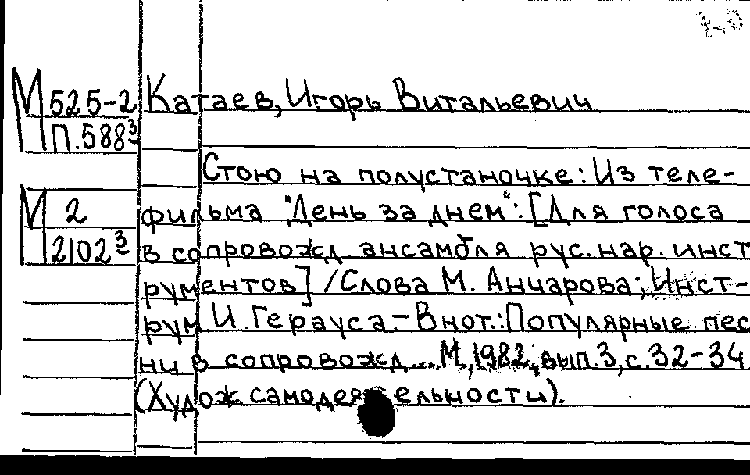 М 525-2 Катаев, Игорь Витальевич
П.588³
Стою на полустаночке: Из теле-
М 2 фильма "День за днем": [Для голоса
2102³ в сопровожд. ансамбля рус. нар. инст
рументов] / Слова М. Анчарова; Инст-
рум И. Герауса.- В нот.: Популярные пес
ни в сопровожд... М, 1982, вып. 3, с. 32-34
(Худож самодеятельности).